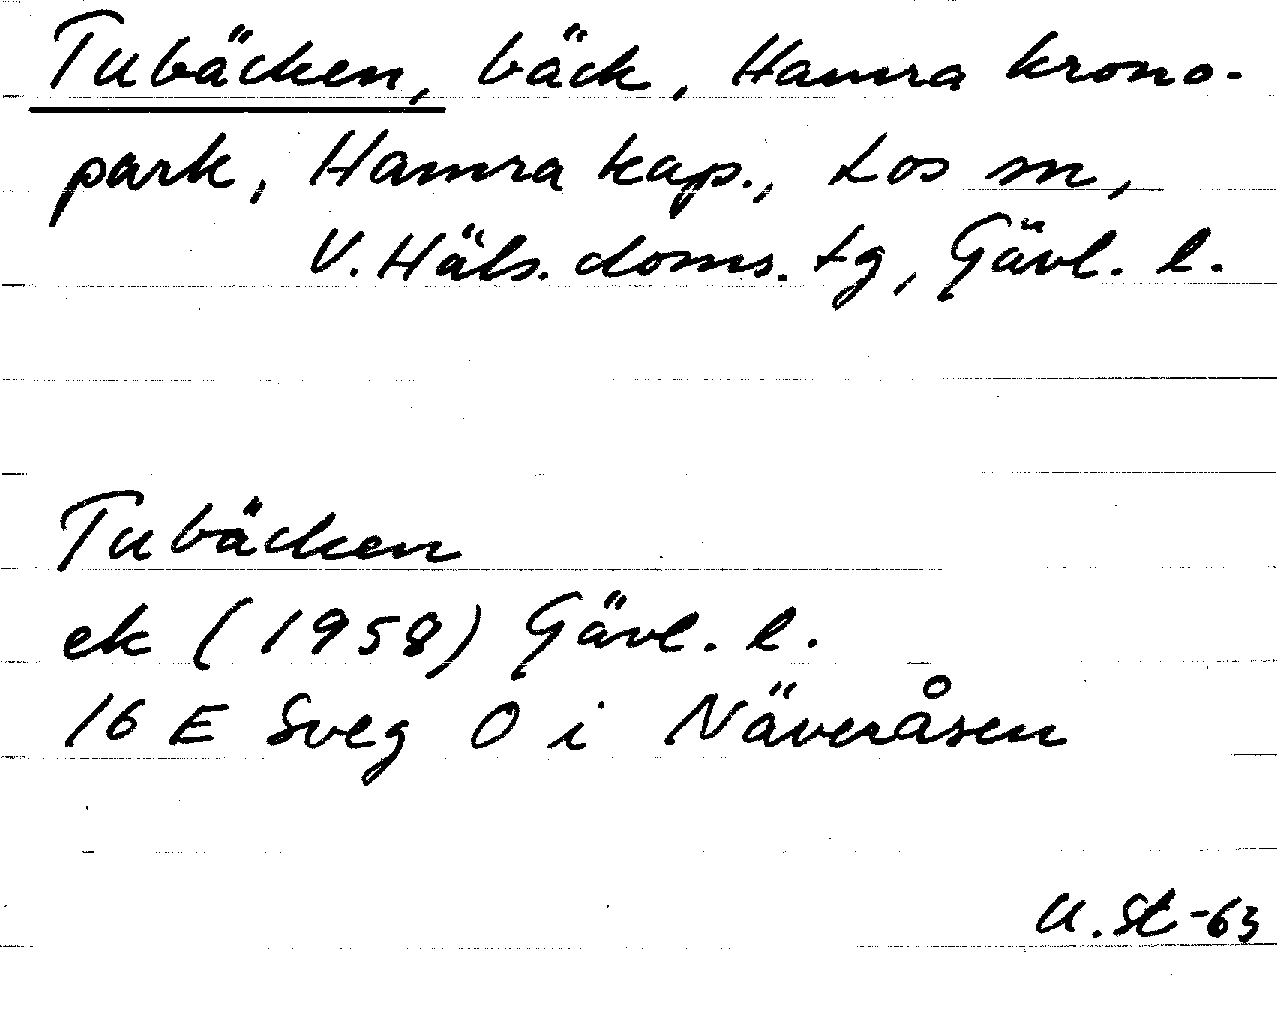 Tubäcken, bäck, Hamra krono-
park, Hamra kap., Los sn,
V. Häls. doms. tg, Gävl. l.
Tubäcken
ek (1958) Gävl. l.
16 E Sveg O i Näveråsen
U. St -63